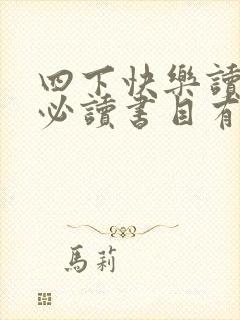 四下快樂讀
必讀書目有
馬莉